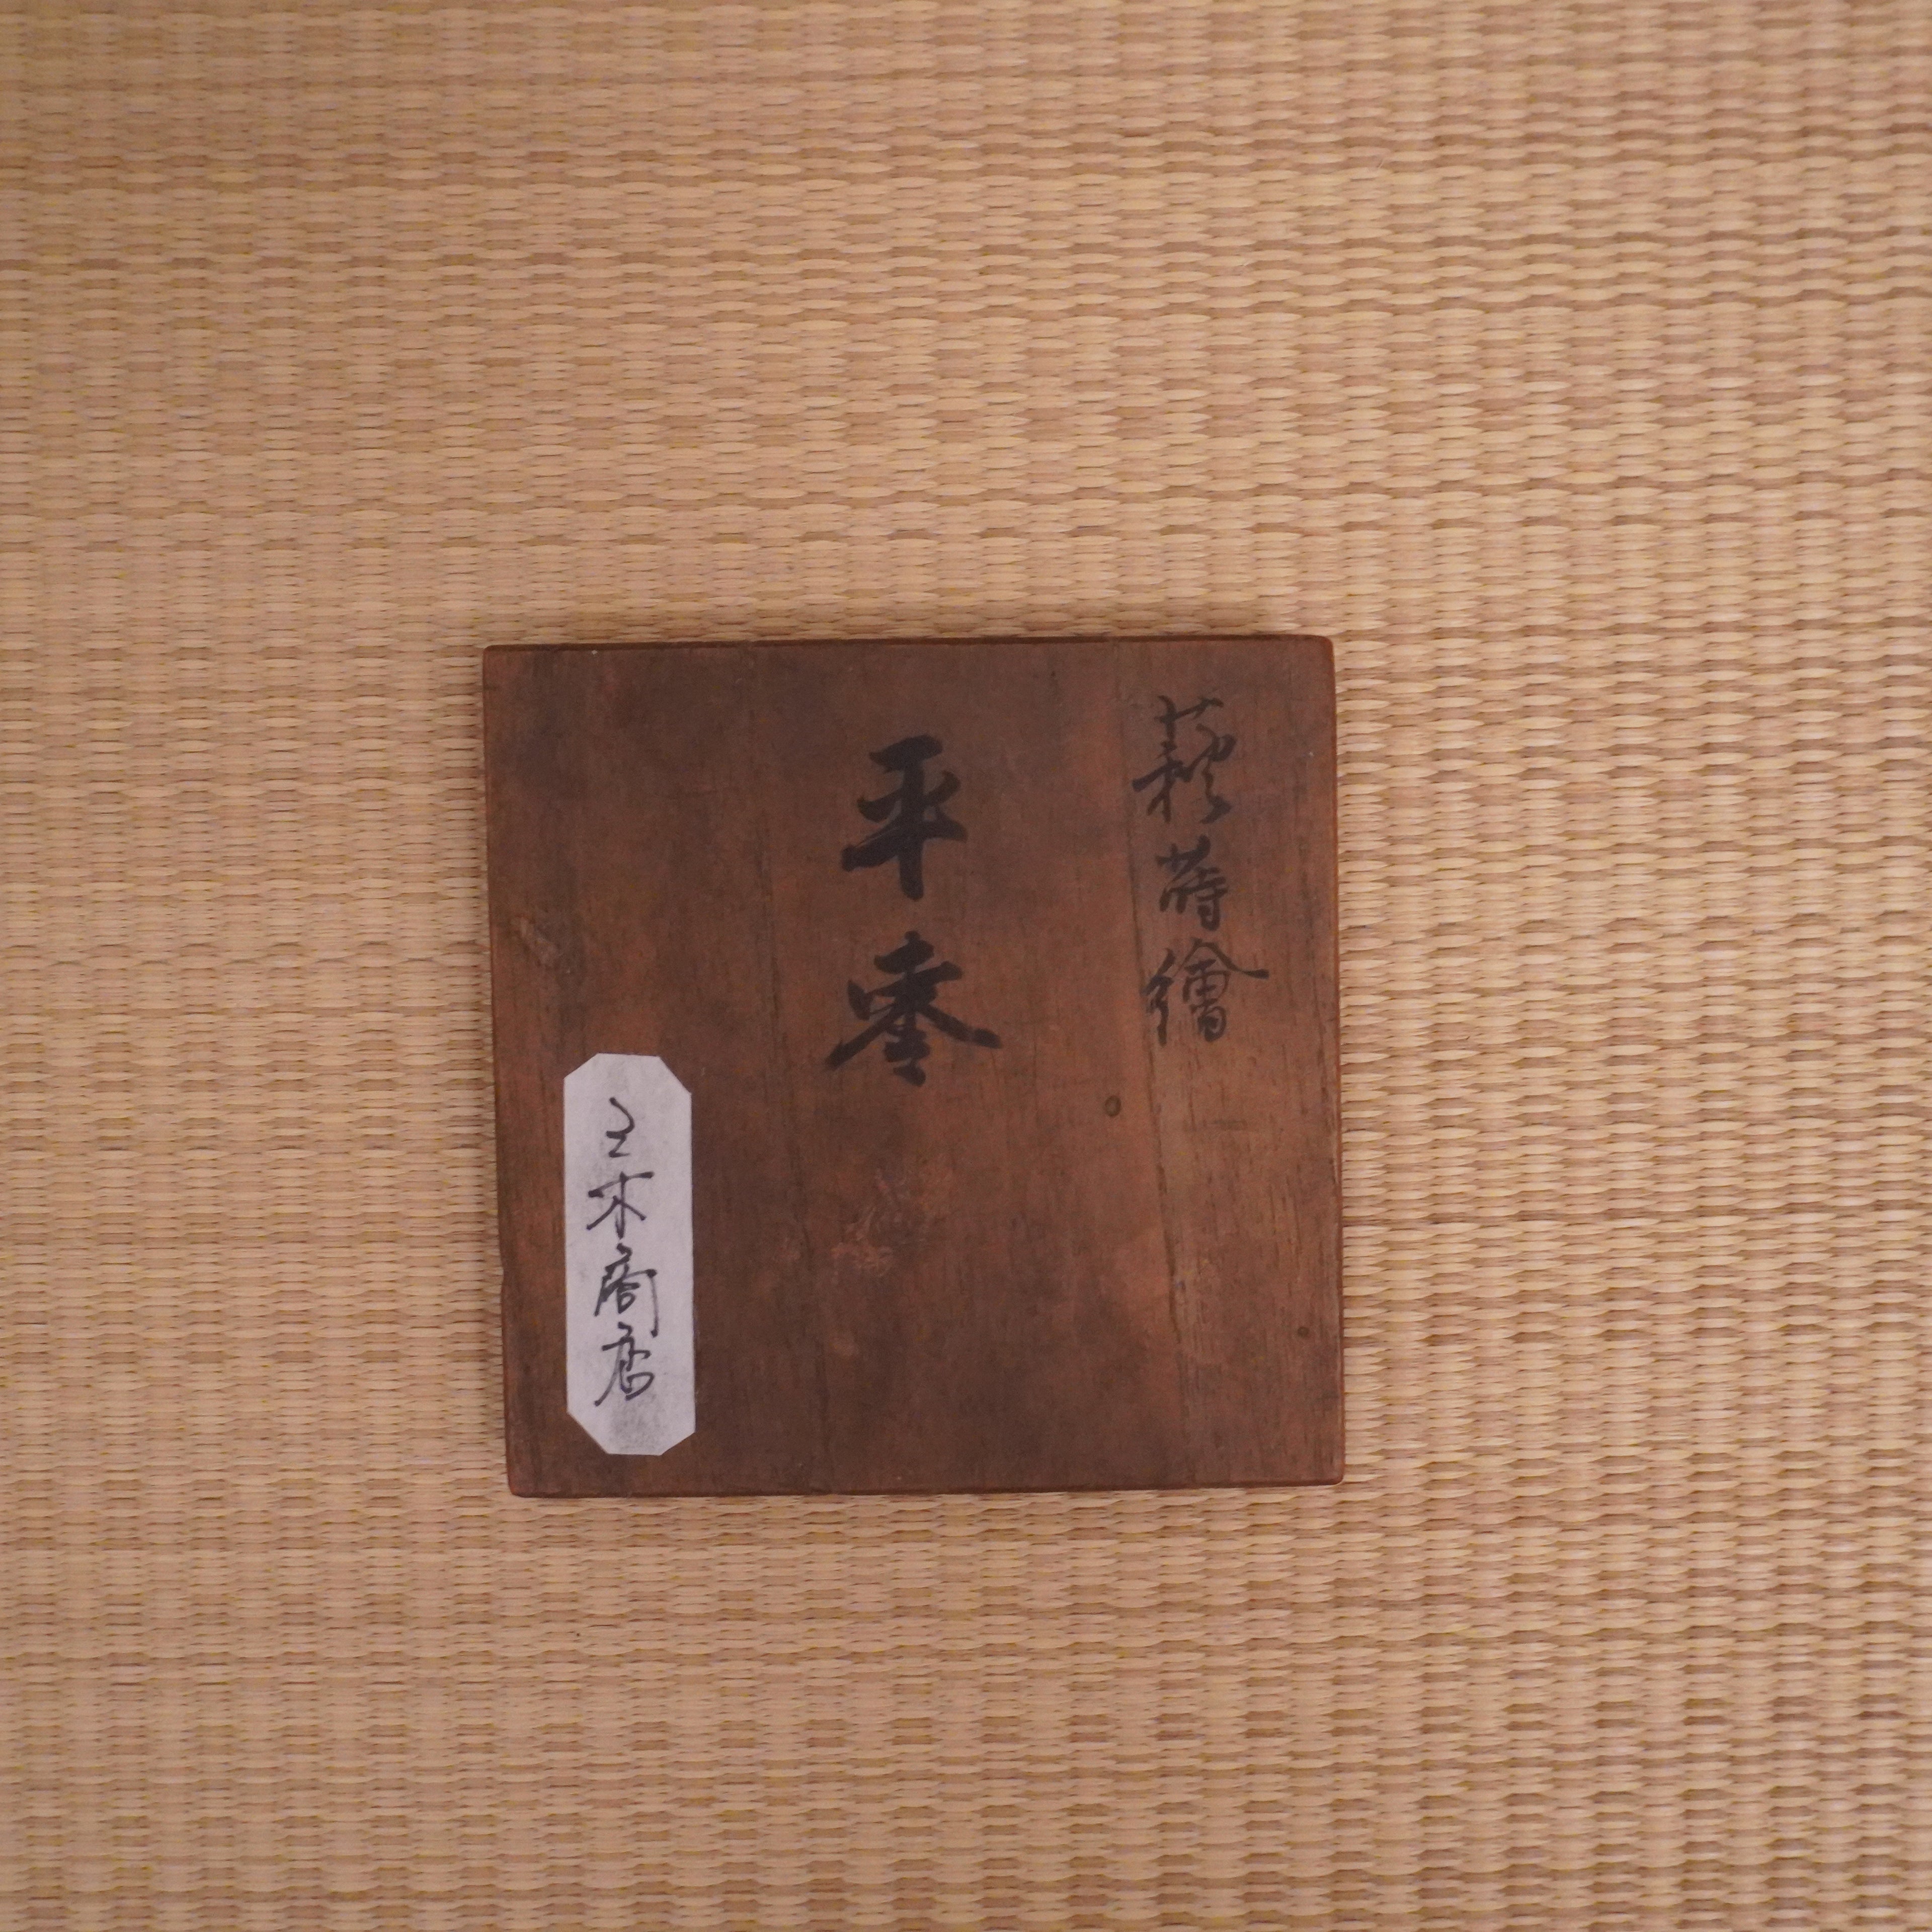 萩蒔繪
平棗
三木商店